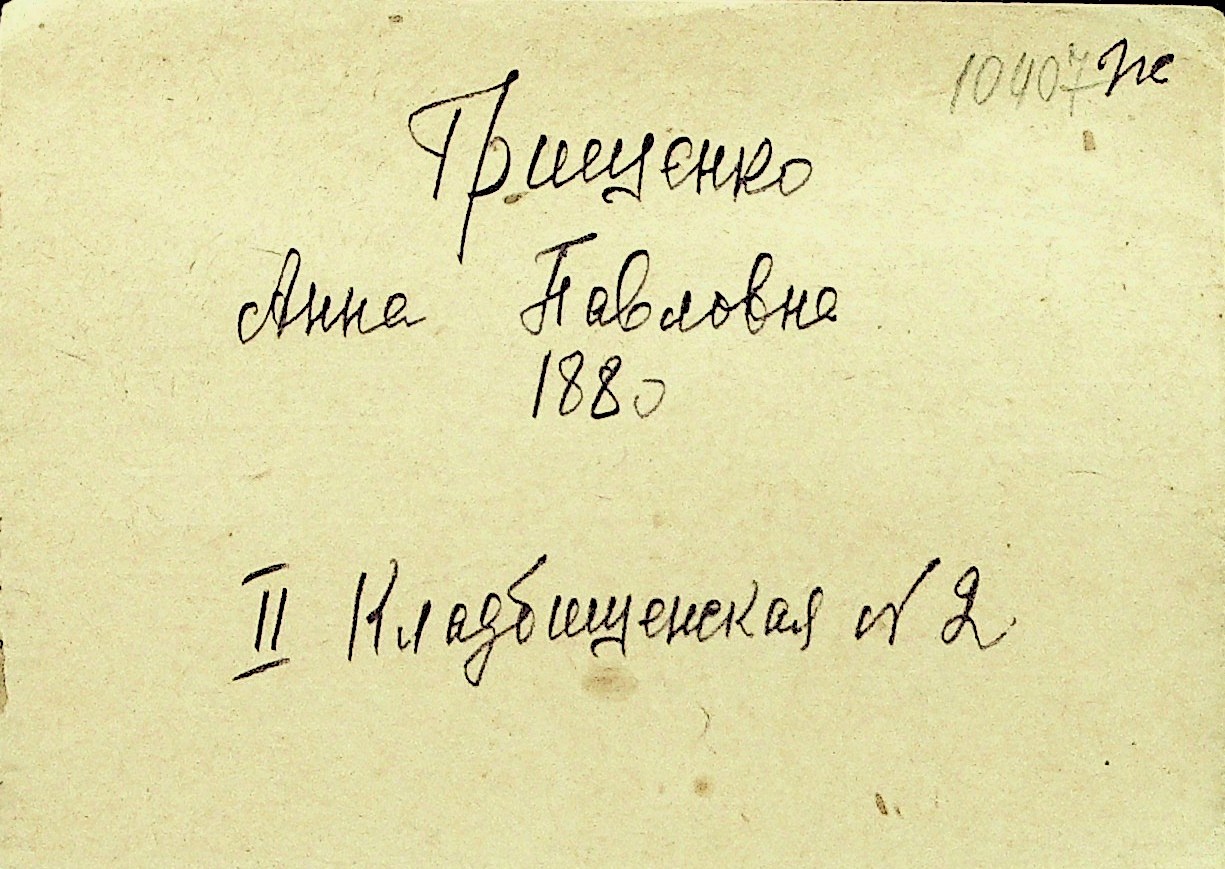 10407 ж
Грищенко
Анна Павловна
1880
II Кладбищенская № 2